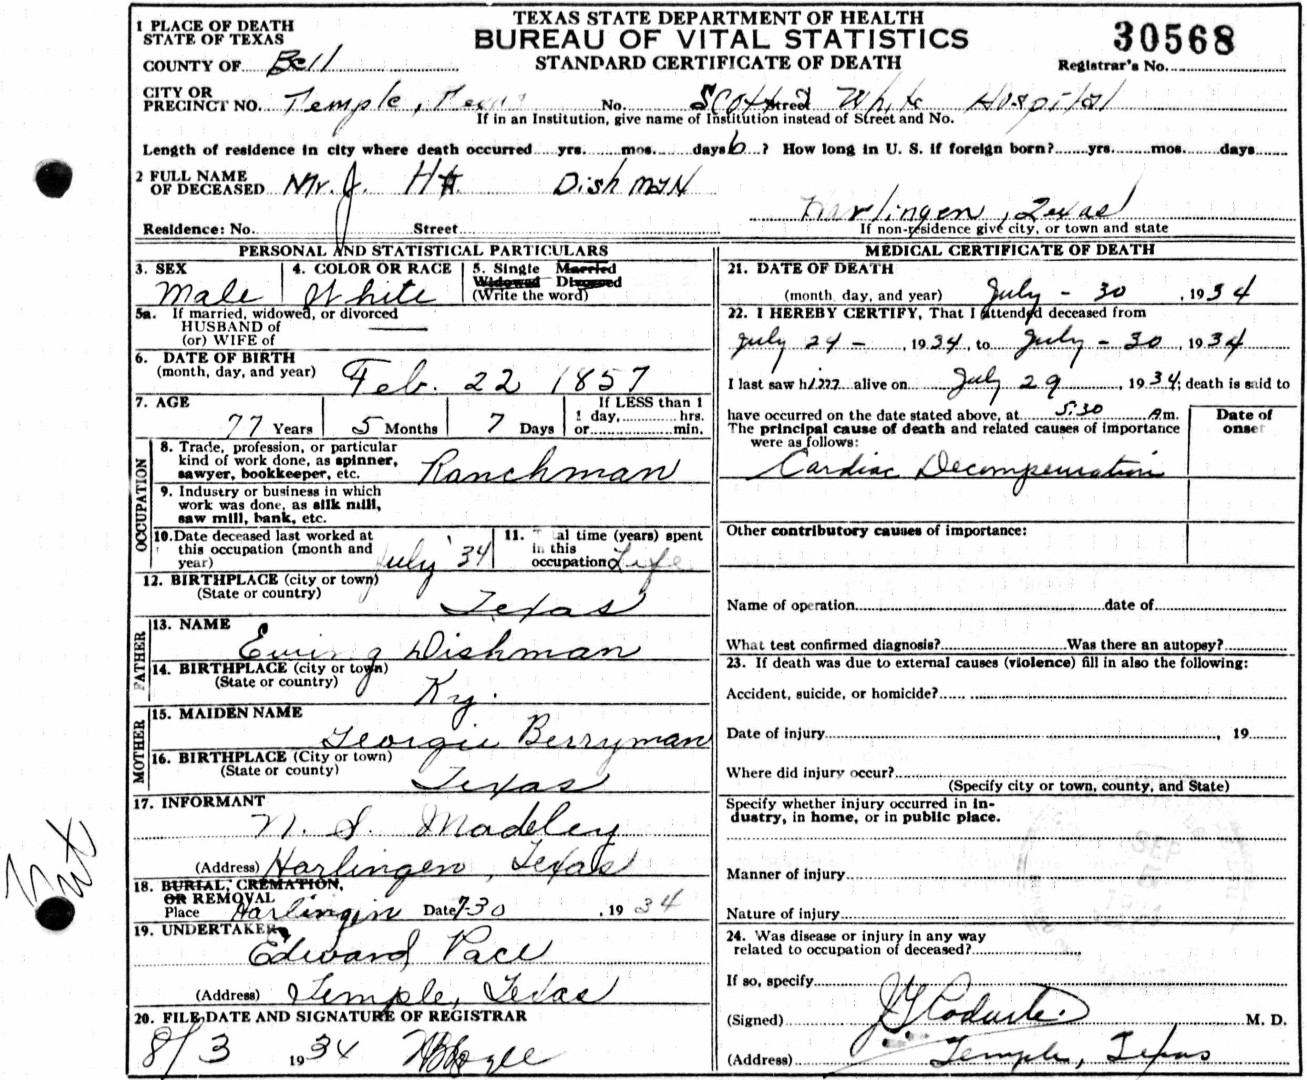 TEXAS STATE DEPARTMENT OF HEALTH
BUREAU OF VITAL STATISTICS
STANDARD CERTIFICATE OF DEATH
30568
Registrar's No.
1 PLACE OF DEATH
STATE OF TEXAS
COUNTY OF Bell
CITY OR
PRECINCT NO. Temple, Texas No. Scott & White Hospital Street
If in an Institution, give name of Institution instead of Street and No.
Length of residence in city where death occurred yrs. mos. days 6 ? How long in U. S. if foreign born? yrs. mos. days
2 FULL NAME
OF DECEASED Mr. J. H. Dishman
Harlingen, Texas
Residence: No. Street
If non-residence give city, or town and state
PERSONAL AND STATISTICAL PARTICULARS
3. SEX
Male
4. COLOR OR RACE
White
5. Single Married
Widowed Divorced
(Write the word)
5a. If married, widowed, or divorced
HUSBAND of
(or) WIFE of
6. DATE OF BIRTH
(month, day, and year) Feb. 22 1857
7. AGE
77 Years 5 Months 7 Days
If LESS than 1
1 day, hrs.
or min.
OCCUPATION
8. Trade, profession, or particular
kind of work done, as spinner,
sawyer, bookkeeper, etc. Ranchman
9. Industry or business in which
work was done, as silk mill,
saw mill, bank, etc.
10. Date deceased last worked at
this occupation (month and
year) July '34
11. T al time (years) spent
in this
occupation Life
12. BIRTHPLACE (city or town)
(State or country) Texas
FATHER
13. NAME
Ewing Dishman
14. BIRTHPLACE (city or town)
(State or country) Ky.
MOTHER
15. MAIDEN NAME
Georgie Berryman
16. BIRTHPLACE (City or town)
(State or county) Texas
17. INFORMANT
N. S. Madeley
(Address) Harlingen, Texas
18. BURIAL, CREMATION,
OR REMOVAL
Place Harlingin Date 7-30, 19 34
19. UNDERTAKER
Edward Pace
(Address) Temple, Texas
20. FILE DATE AND SIGNATURE OF REGISTRAR
8/3 1934
MEDICAL CERTIFICATE OF DEATH
21. DATE OF DEATH
(month, day, and year) July - 30, 1934
22. I HEREBY CERTIFY, That I attended deceased from
July 24 -, 1934, to July - 30, 1934
I last saw him alive on July 29, 1934; death is said to
have occurred on the date stated above, at 5:30 Am.
The principal cause of death and related causes of importance
were as follows:
Date of
onset
Cardiac Decompensation
Other contributory causes of importance:
Name of operation date of
What test confirmed diagnosis? Was there an autopsy?
23. If death was due to external causes (violence) fill in also the following:
Accident, suicide, or homicide?
Date of injury, 19
Where did injury occur?
(Specify city or town, county, and State)
Specify whether injury occurred in in-
dustry, in home, or in public place.
Manner of injury
Nature of injury
24. Was disease or injury in any way
related to occupation of deceased?
If so, specify
(Signed) M. D.
(Address) Temple, Texas